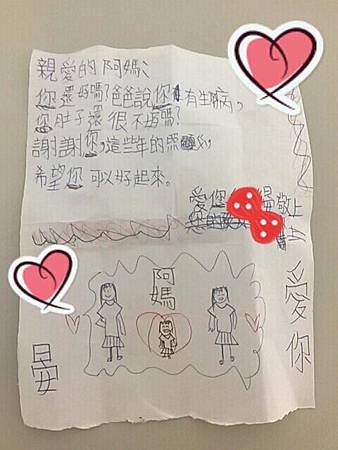 親愛的阿媽、
您還好嗎？爸爸說您有生病，
您肚子還很不好嗎？
謝謝您，這些年的照顧，
希望您可以好起來。
愛您
敬上
阿媽
愛你